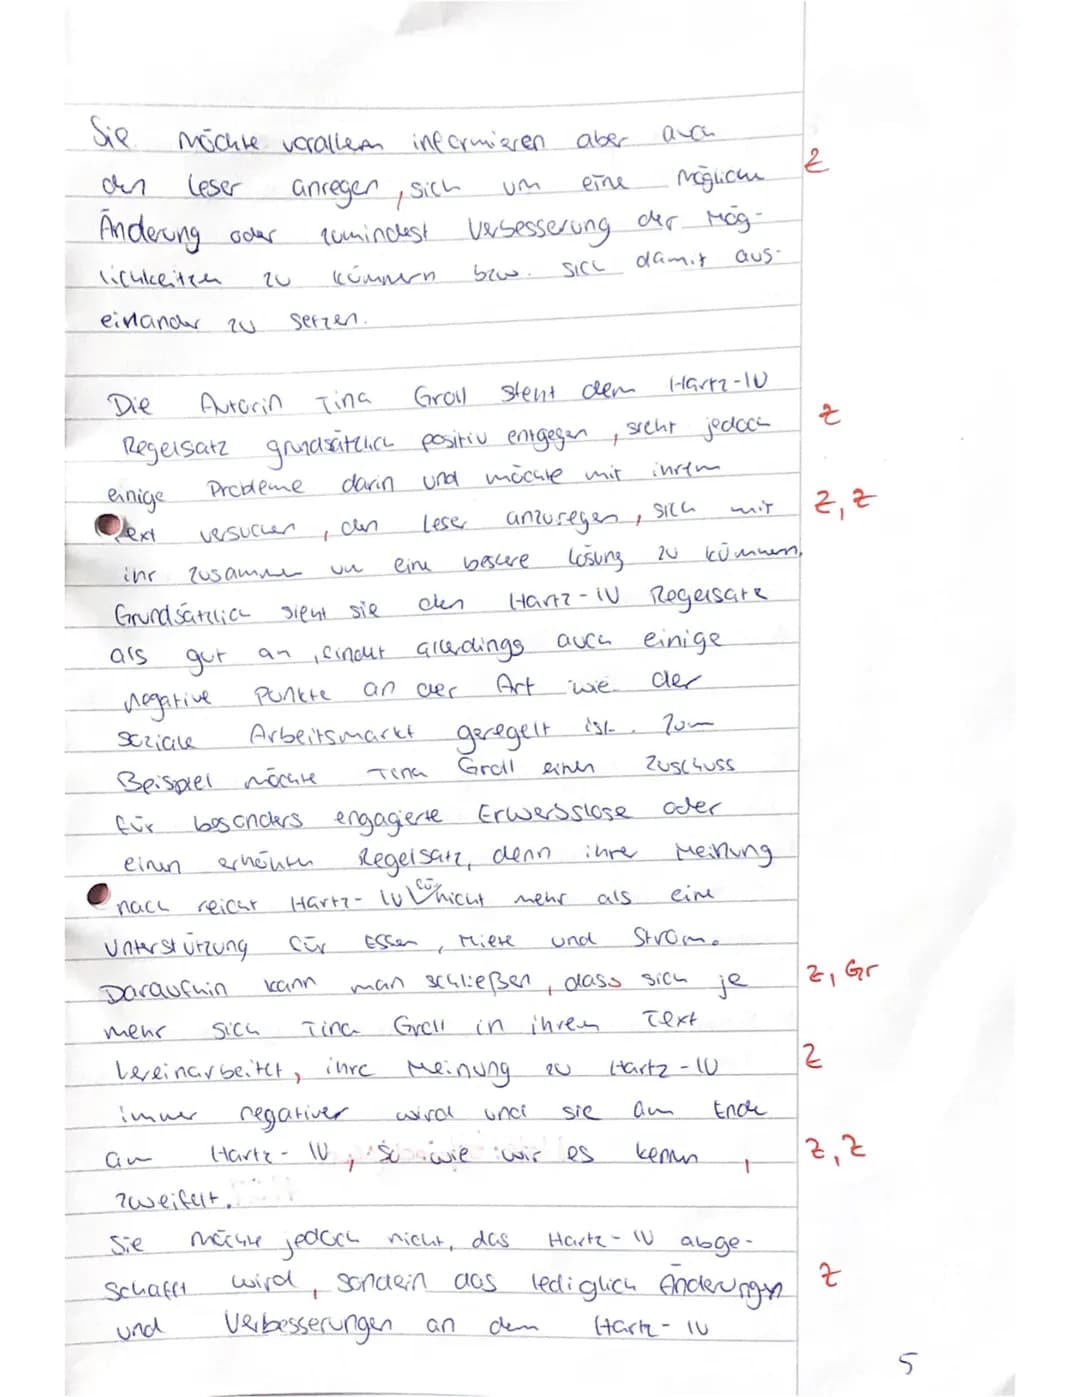 Sie möchte vorallem informieren aber auch
den Leser anregen, sich um eine mögliche Z
Änderung oder zumindest Verbesserung der Mög-
lichkeiten zu kümmern bzw. sich damit aus-
einander zu setzen.
Die Autorin Tina Groll steht dem Hartz-IV
Regelsatz grundsätzlich positiv entgegen, sieht jedoch Z
einige Probleme darin und möchte mit ihrem
Text versuchen, den Leser anzuregen, sich mit Z, Z
ihr zusammen um eine bessere Lösung zu kümmern,
Grundsätzlich sieht sie den Hartz-IV Regelsatz
als gut an, findet allerdings auch einige
negative Punkte an der Art wie der
soziale Arbeitsmarkt geregelt ist. Zum
Beispiel möchte Tina Groll einen Zuschuss
für besonders engagierte Erwerbslose oder
einen erhöhten Regelsatz, denn ihre Meinung
nach reicht Hartz-IV für nicht mehr als eine
Unterstützung für Essen, Miete und Strom.
Daraufhin kann man schließen, dass sich je Z, Gr
mehr sich Tina Groll in ihren Text
hereinarbeitet, ihre Meinung zu Hartz-IV Z
immer negativer wird und sie am Ende
an Hartz-IV, so wie wir es kennen, Z, Z
zweifelt.
Sie möchte jedoch nicht, das Hartz-IV abge-
schafft wird, sondern das lediglich Änderungen Z
und Verbesserungen an dem Hartz-IV
5